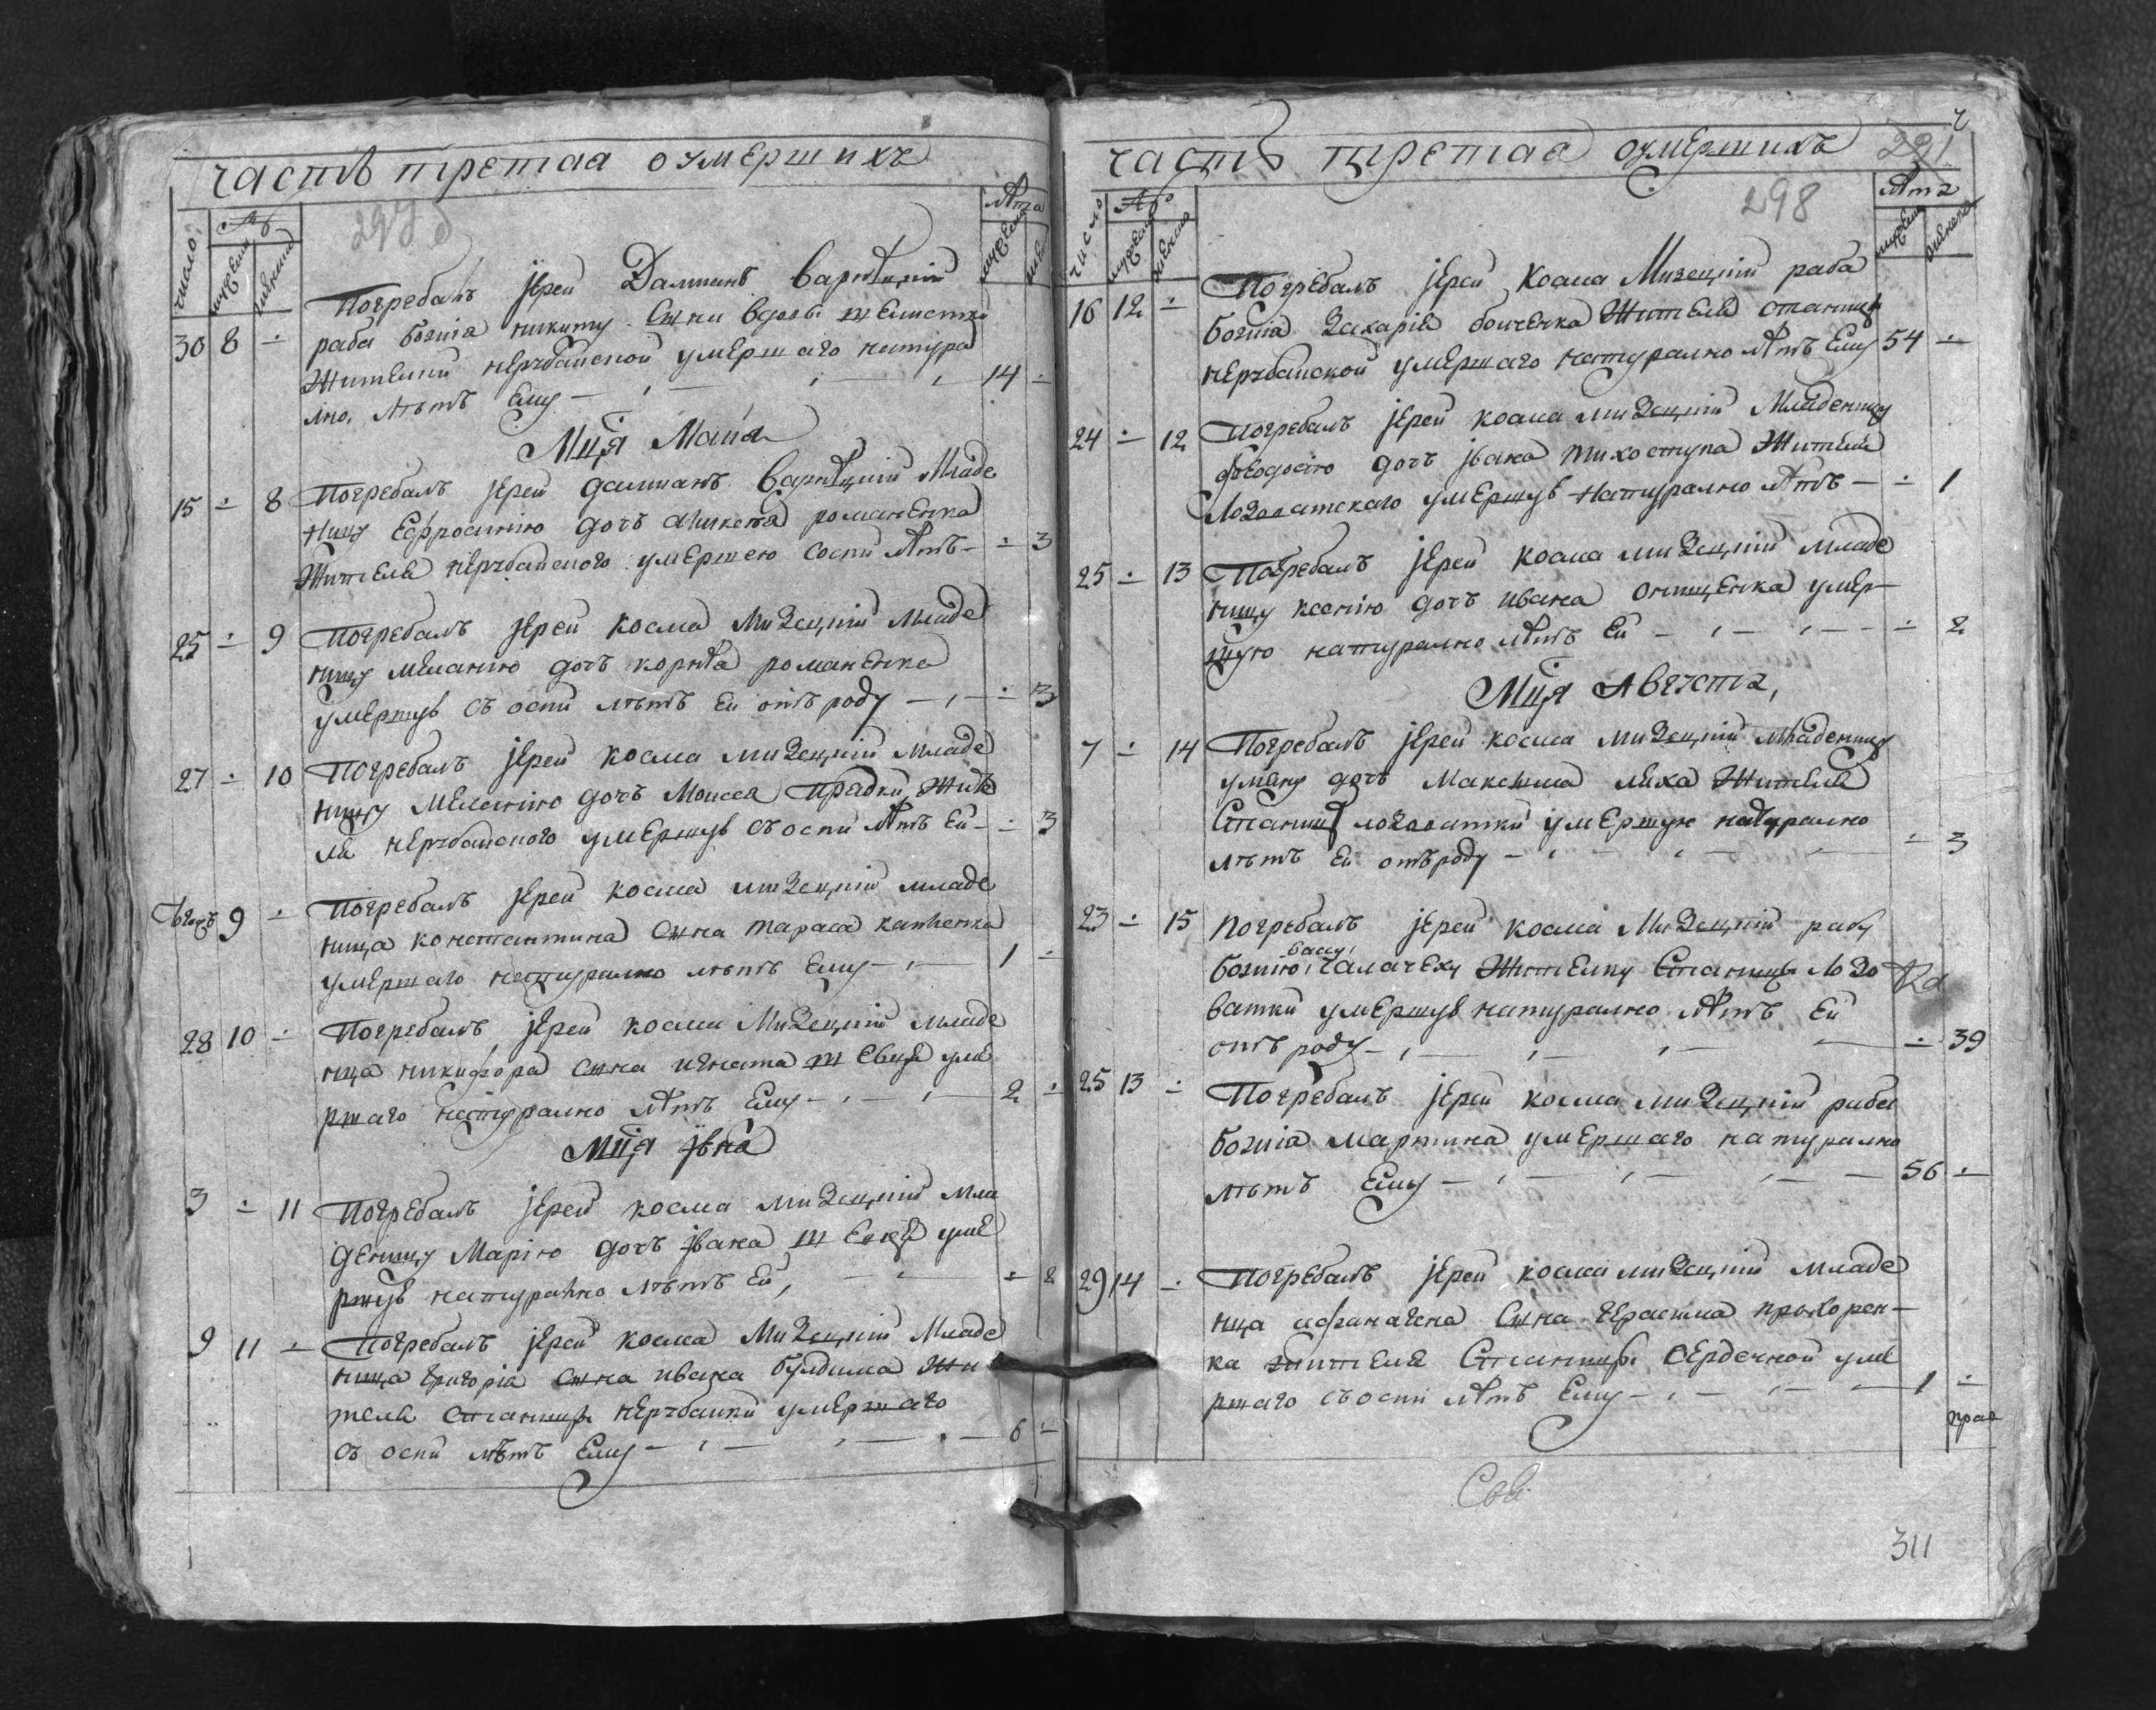 часть третая оумершихъ
297
число
мужеска
женска
Лѣта
мужеска
30 8 ÷ Погребалъ їерей Дамианъ Варнѣцкій
раба божия никиту сына вдовы
жителки нерубайской умершаго натура
лно, лѣтъ ему — 14 ÷
Мця Маиа
15 ÷ 8 Погребалъ їерей дамианъ Варнѣцкій младе
ницу Ефросинію дочъ романенка
жителя нерубайского умершею соспи лѣтъ — ÷ 3
25 ÷ 9 погребалъ їерей косма Мизецкій младе
ницу меланию дочъ корнѣа романенка
умершую съ оспи лѣтъ ей отъ роду — ÷ 3
27 ÷ 10 Погребалъ їерей косма мизецкій младе
ницу Меланию дочъ Моисеа Прадки жите
ля нерубайского умершую съ оспи лѣтъ ей — ÷ 3
9 ÷ погребалъ їерей косма мизецкій младе
нца константина сына тараса
умершаго натурално лѣтъ ему — 1 ÷
28 10 ÷ Погребалъ їерей косма Мизецкій младе
нца никифора сына игната умe
ршаго натурално лѣтъ ему — 2 ÷
Мця їюна
3 ÷ 11 Погребалъ їерей косма мизецкій мла
деницу Марію дочъ ївана уме
ршую натурално лѣтъ ей, — ÷ 2
9 11 ÷ Погребалъ їерей косма Мизецкій Младе
нца григорія сына ивана булдима жи
теля станицы нерубайки умершаго
съ оспи лѣтъ ему — 6 ÷
часть третая оумершихъ
291
298
число
мужеска
женска
Лѣта
мужеска
женска
16 12 ÷ Погребалъ їерей косма Мизецкій раба
божия захарія бойченка жителя станицы
нерубайской умершаго натурално лѣтъ ему 54 ÷
24 ÷ 12 погребалъ їерей косма мизецкій Младеницу
феодосію дочъ ївана тихоступа жителя
лозоватского умершую натурално лѣтъ — ÷ 1
25 ÷ 13 Погребалъ їерей косма мизецкій младе
ницу ксению дочъ ивана онищенка умер
шую натурално лѣтъ ей — ÷ 2
Мця Августа,
7 ÷ 14 Погребалъ їерей косма мизецкій младеницу
улияну дочъ Максима ляха жителя
Станицы лозоватки умершую натурално
лѣтъ ей отъ роду — ÷ 3
23 ÷ 15 погребалъ їерей косма Мизецкій рабу
божию жителку Станицы Лозо
ватки умершую натурално лѣтъ ей
отъ роду — ÷ 39
25 13 ÷ Погребалъ їерей косма мизецкій раба
божия мартина умершаго натурално
лѣтъ ему — 56 ÷
29 14 ÷ Погребалъ їерей косма мизецкій младе
нца афанасиа сына герасима прохорен-
ка жителя Станицы сердечной уме
ршаго съ оспи лѣтъ ему — 1 ÷
311